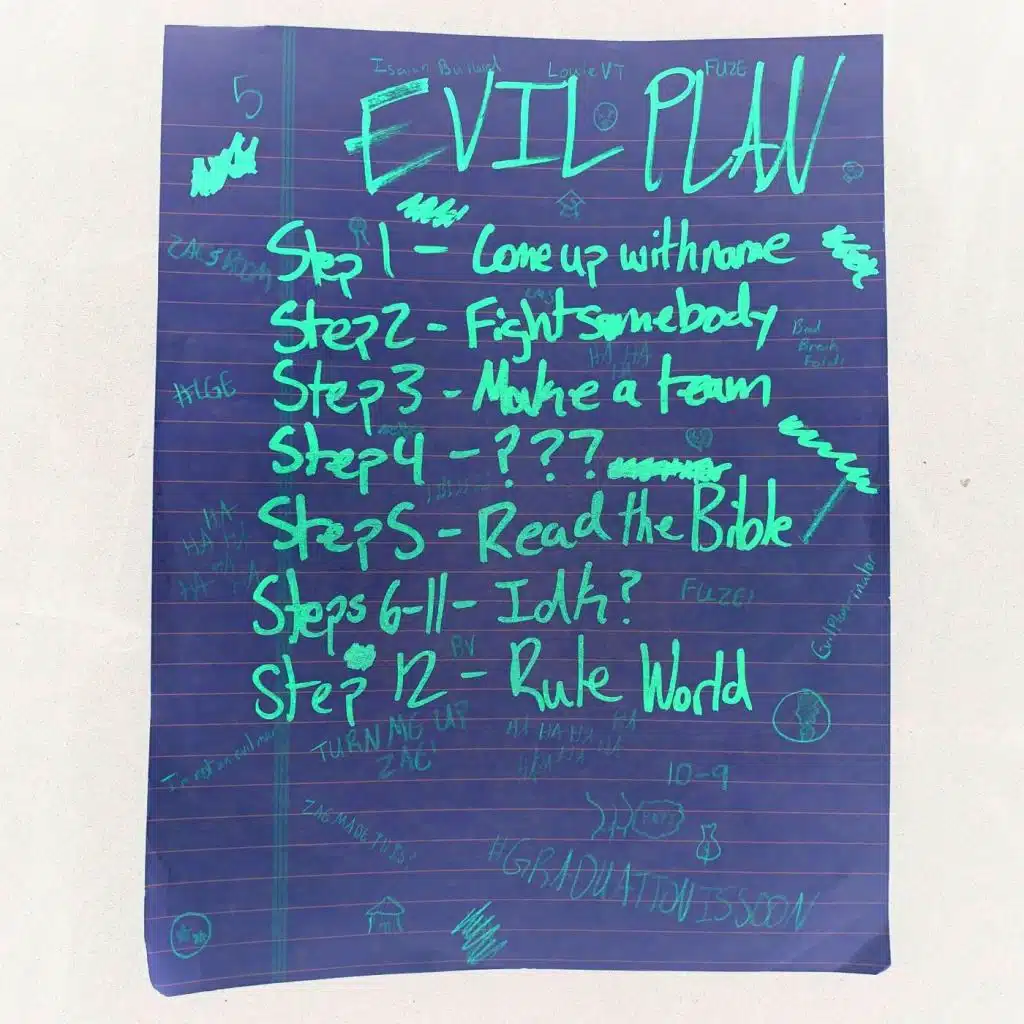 5
Louie VT
FUZE
EVIL PLAN
Step 1 - Come up with name
ZAC'S ROOM
Step 2 - Fight somebody
HA HA
HA
Bad
Break
#LGE
Step 3 - Make a team
Step 4 - ???
Step 5 - Read the Bible
HA
HA HA
HA HA
Steps 6-11 - Idk?
FUZE!
BV
Step 12 - Rule World
I'm not an evil man
TURN ME UP
ZAC!
HA HA HA HA
10-9
ZAC MADE THIS!
#GRADUATIONISSOON